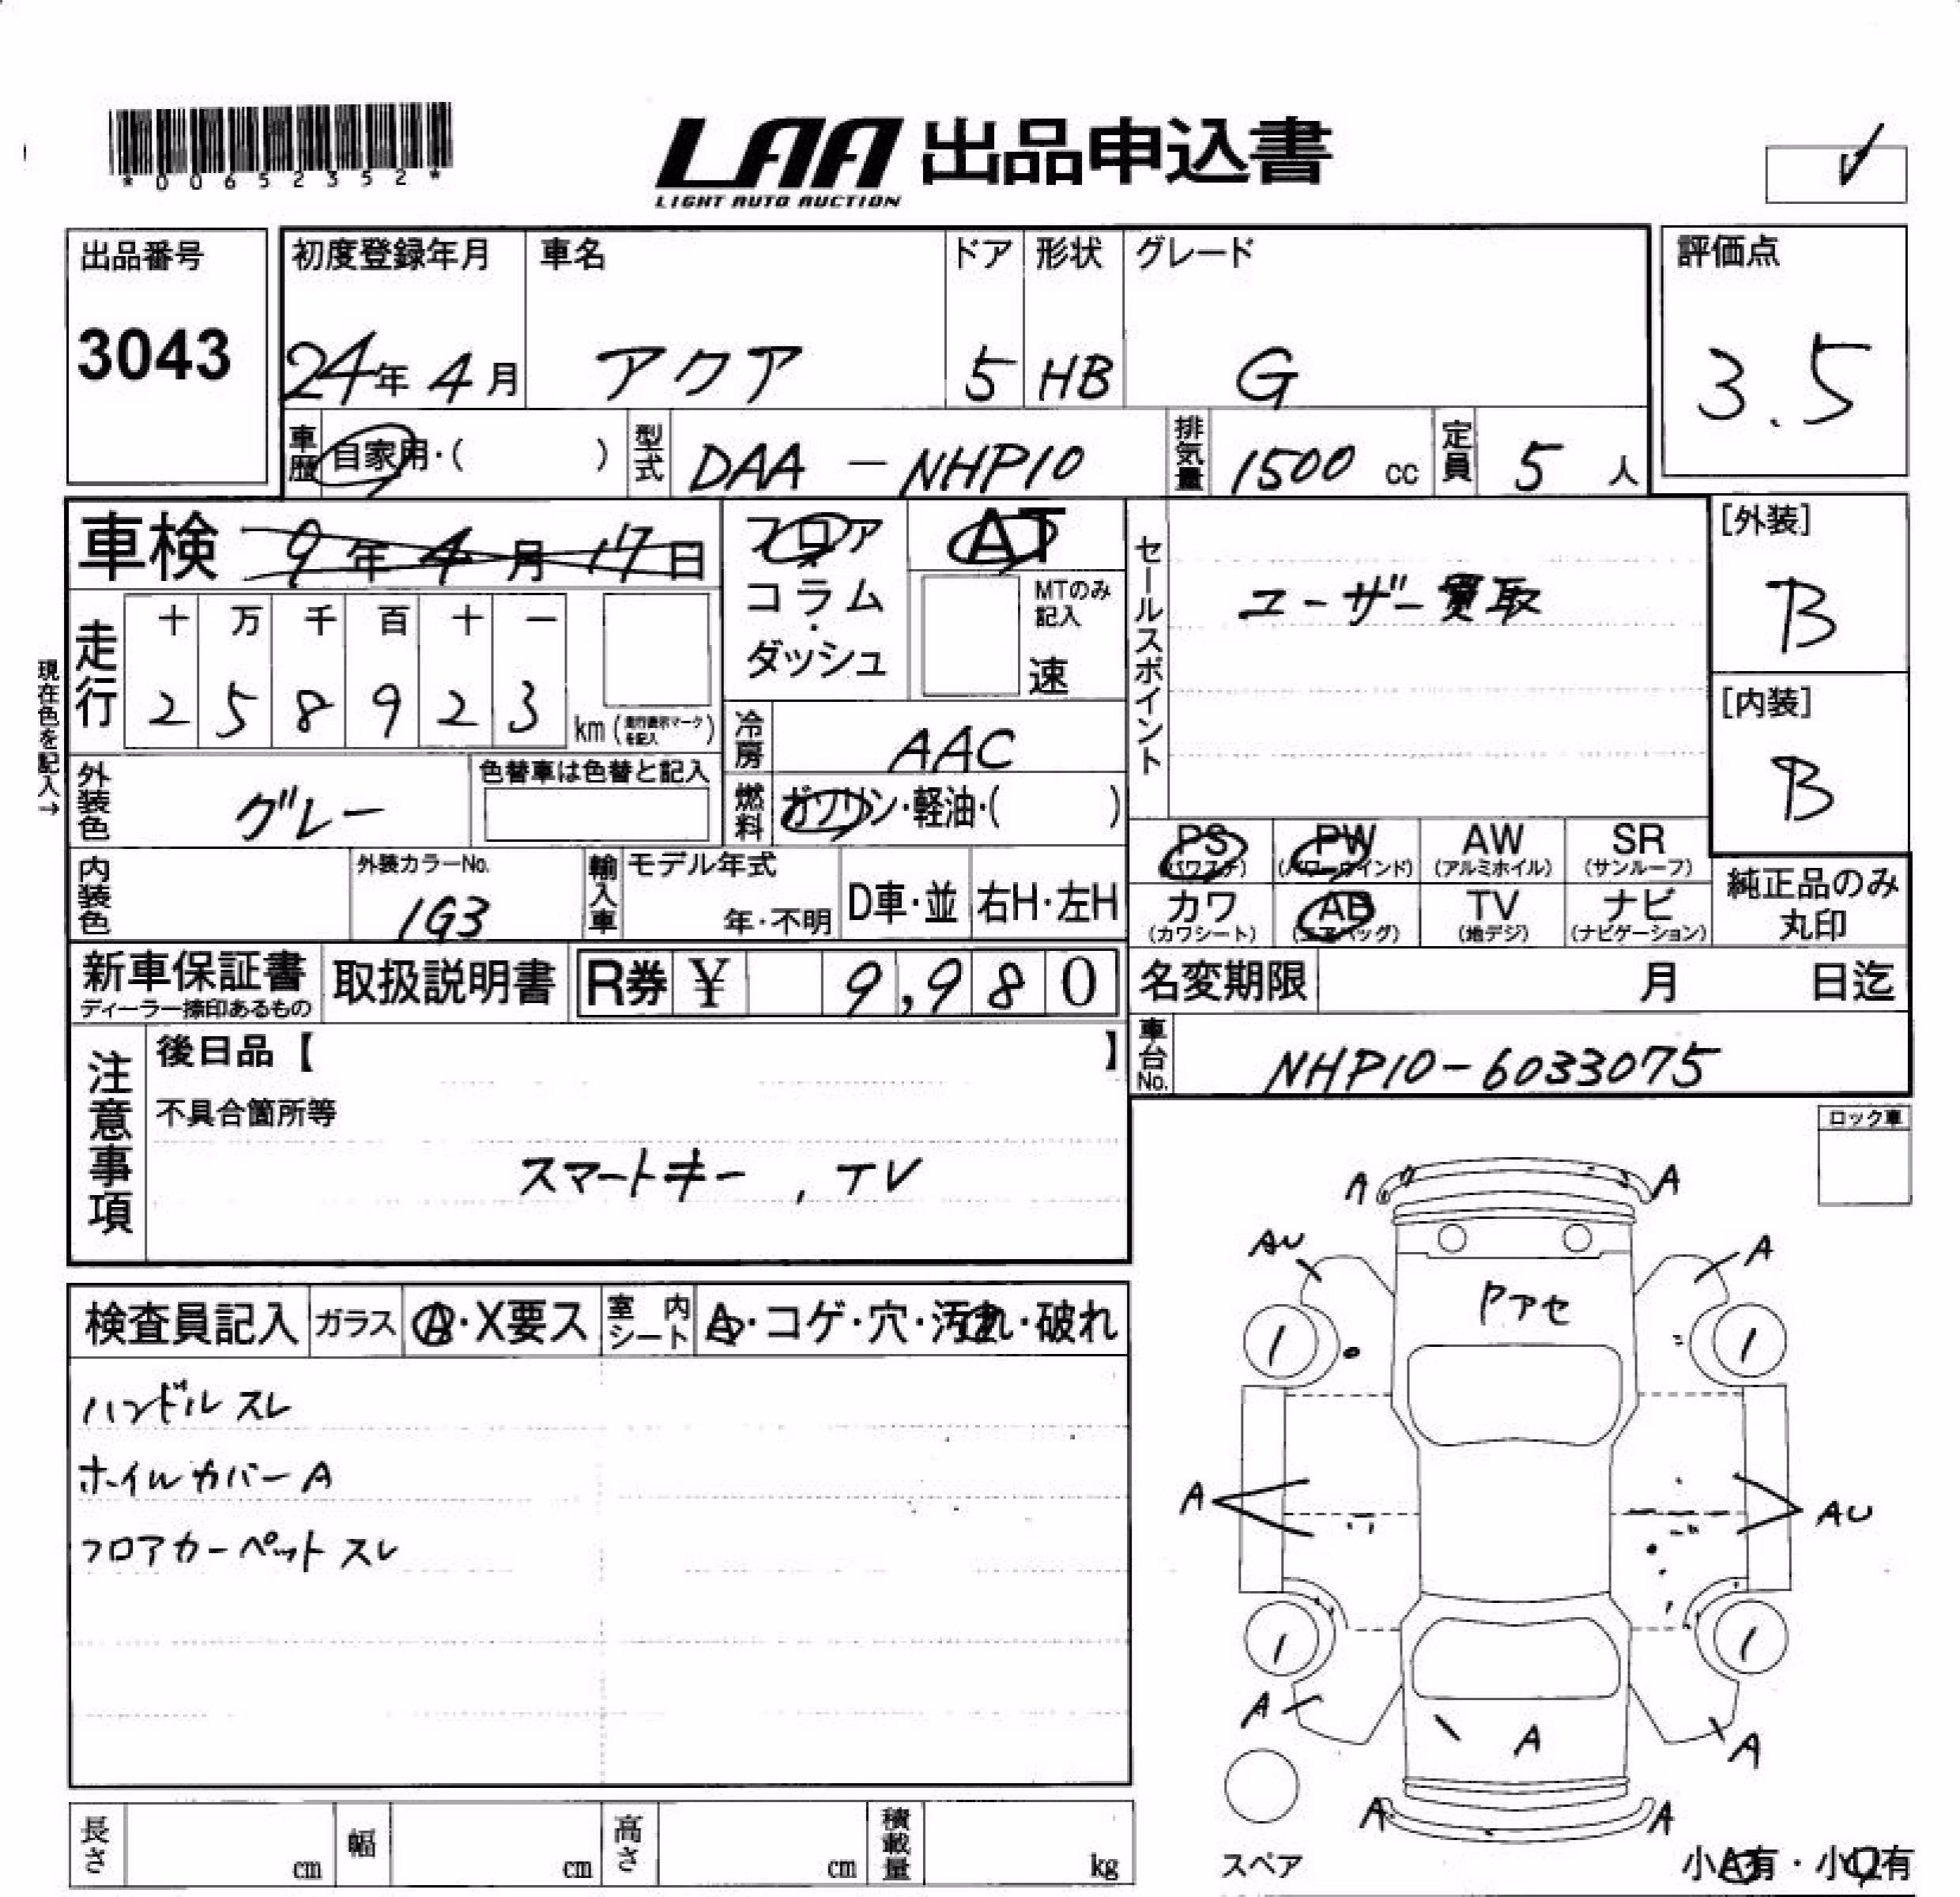 *00652352*
LAA 出品申込書
LIGHT AUTO AUCTION
出品番号
3043
初度登録年月
24年 4月
車名
アクア
ドア
5
形状
HB
グレード
G
評価点
3.5
車歴 自家用・( )
型式 DAA-NHP10
排気量 1500 cc
定員 5 人
車検 9年 4月 17日
フロア
コラム・
ダッシュ
AT
MTのみ
記入
速
セールスポイント
ユーザー買取
[外装]
B
[内装]
B
現在色を記入→
走行
十 万 千 百 十 一
2 5 8 9 2 3 km (走行表示マークを記入)
冷房 AAC
外装色 グレー
色替車は色替と記入
燃料 ガソリン・軽油・( )
PS (パワステ) PW (パワーウインド) AW (アルミホイル) SR (サンルーフ)
カワ (カワシート) AB (エアバッグ) TV (地デジ) ナビ (ナビゲーション)
純正品のみ
丸印
内装色
外装カラーNo.
1G3
輸入車
モデル年式
年・不明
D車・並
右H・左H
新車保証書
ディーラー捺印あるもの
取扱説明書
R券 ¥ 9,980
名変期限 月 日迄
車台No. NHP10-6033075
注意事項
後日品【 】
不具合箇所等
スマートキー , TV
ロック車
検査員記入
ガラス A・X要ス
室内シート A・コゲ・穴・汚れ・破れ
ハンドル スレ
ホイルカバー A
フロアカーペット スレ
A A
AU A
Pアセ
1 1
A AU
1 1
A A
A
A A
スペア
小A有・小U有
長さ cm
幅 cm
高さ cm
積載量 kg